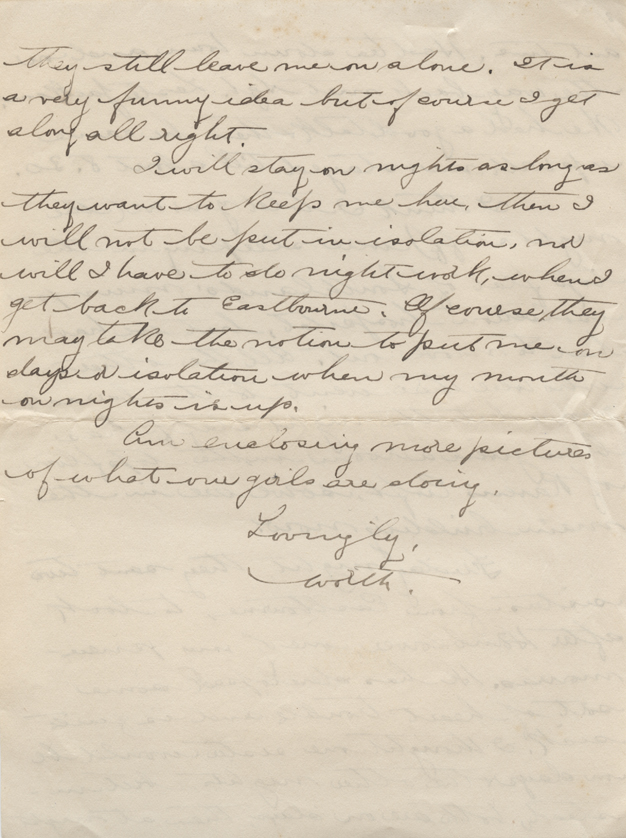 they still leave me on alone. It is
a very funny idea but of course I get
along all right.
I will stay on nights as long as
they want to keep me here, then I
will not be put in isolation, nor
will I have to do night work, when I
get back to Eastbourne. Of course, they
may take the notion to put me on
days in isolation when my month
on nights is up.
Am enclosing more pictures
of what our girls are doing.
Lovingly,
Worth.